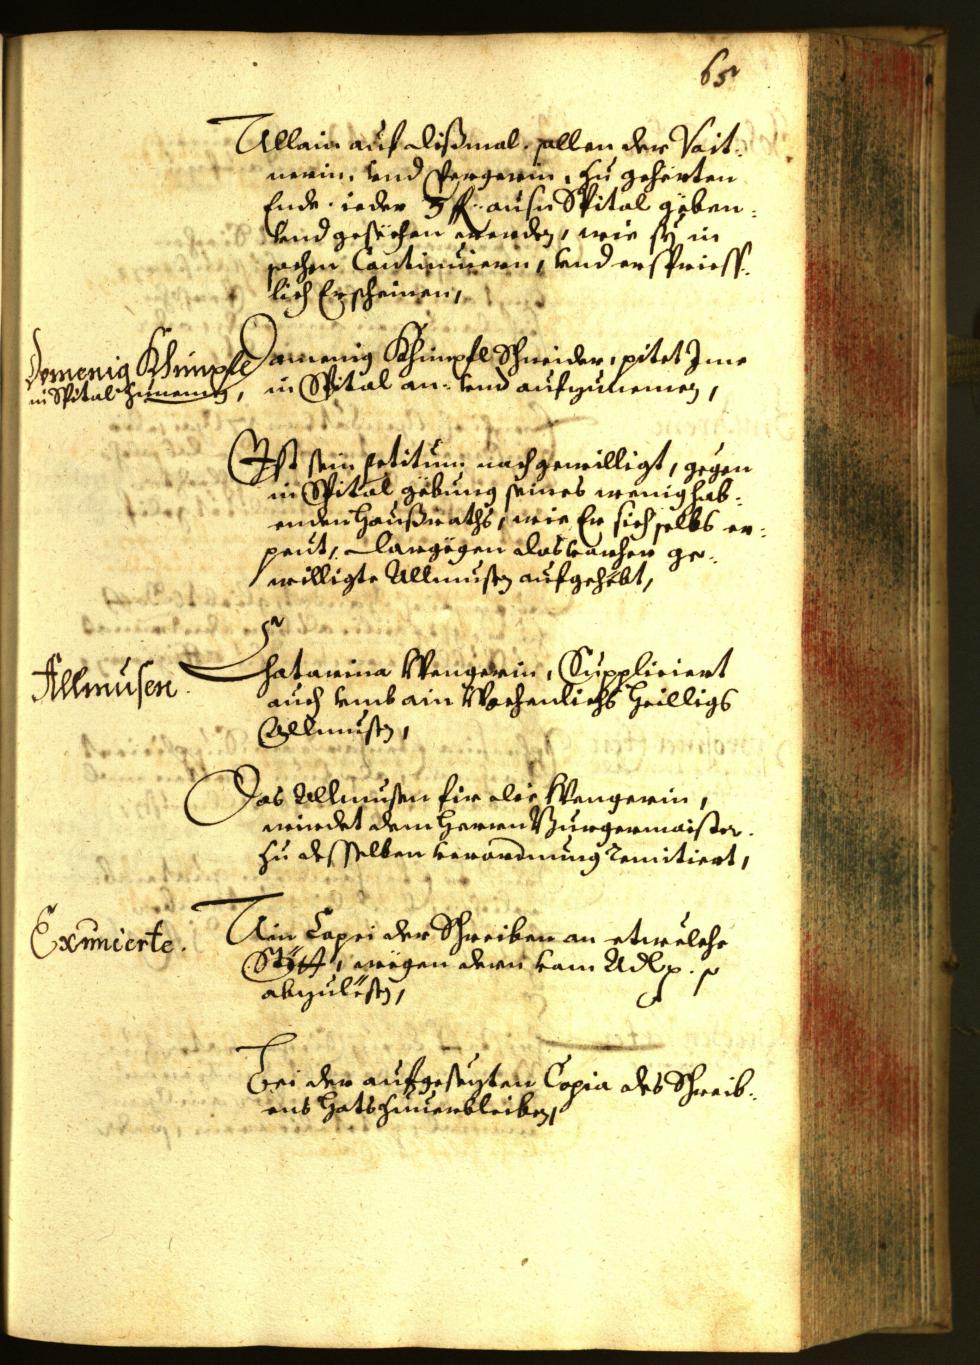 65
Allain auf dißmal sollen der Vait-
nerin, vnd Pergerin, zu geherten
Ende ieder 3 f. ausn Spital geben
vnd gesehen werden, wie sy in
sachen Continuiern, vnd erspriess-
lich Erscheinen,
Domenig Khimpfl
in Spital Zunemen,
Domenig Khimpfl Schneider, pitet Ime
in Spital an- vnd aufzunemen,
Ist sein petitum nachgewilligt, gegen
in Spital gebung seines wenig hab-
enden Haußraths, wie Er sich selbs er-
peut, dargegen das vorher ge-
willigte Allmusen aufgehebt,
Allmusen.
Chatarina Wengerin, Suppliciert
auch vmb ain Wochenlichs Heilligs
Allmusen,
Das Allmusen fir die Wengerin,
wirdet dem Herrn Burgermaister
zu desselben verordnung remitiert,
Eximierte.
Ain Copei der Schreiben an etwelche
Stött, wegen dern vom Adl p.
abzulesen,
Bei der aufgesezten Copia des Schreib-
ens hats zuuerbleiben,